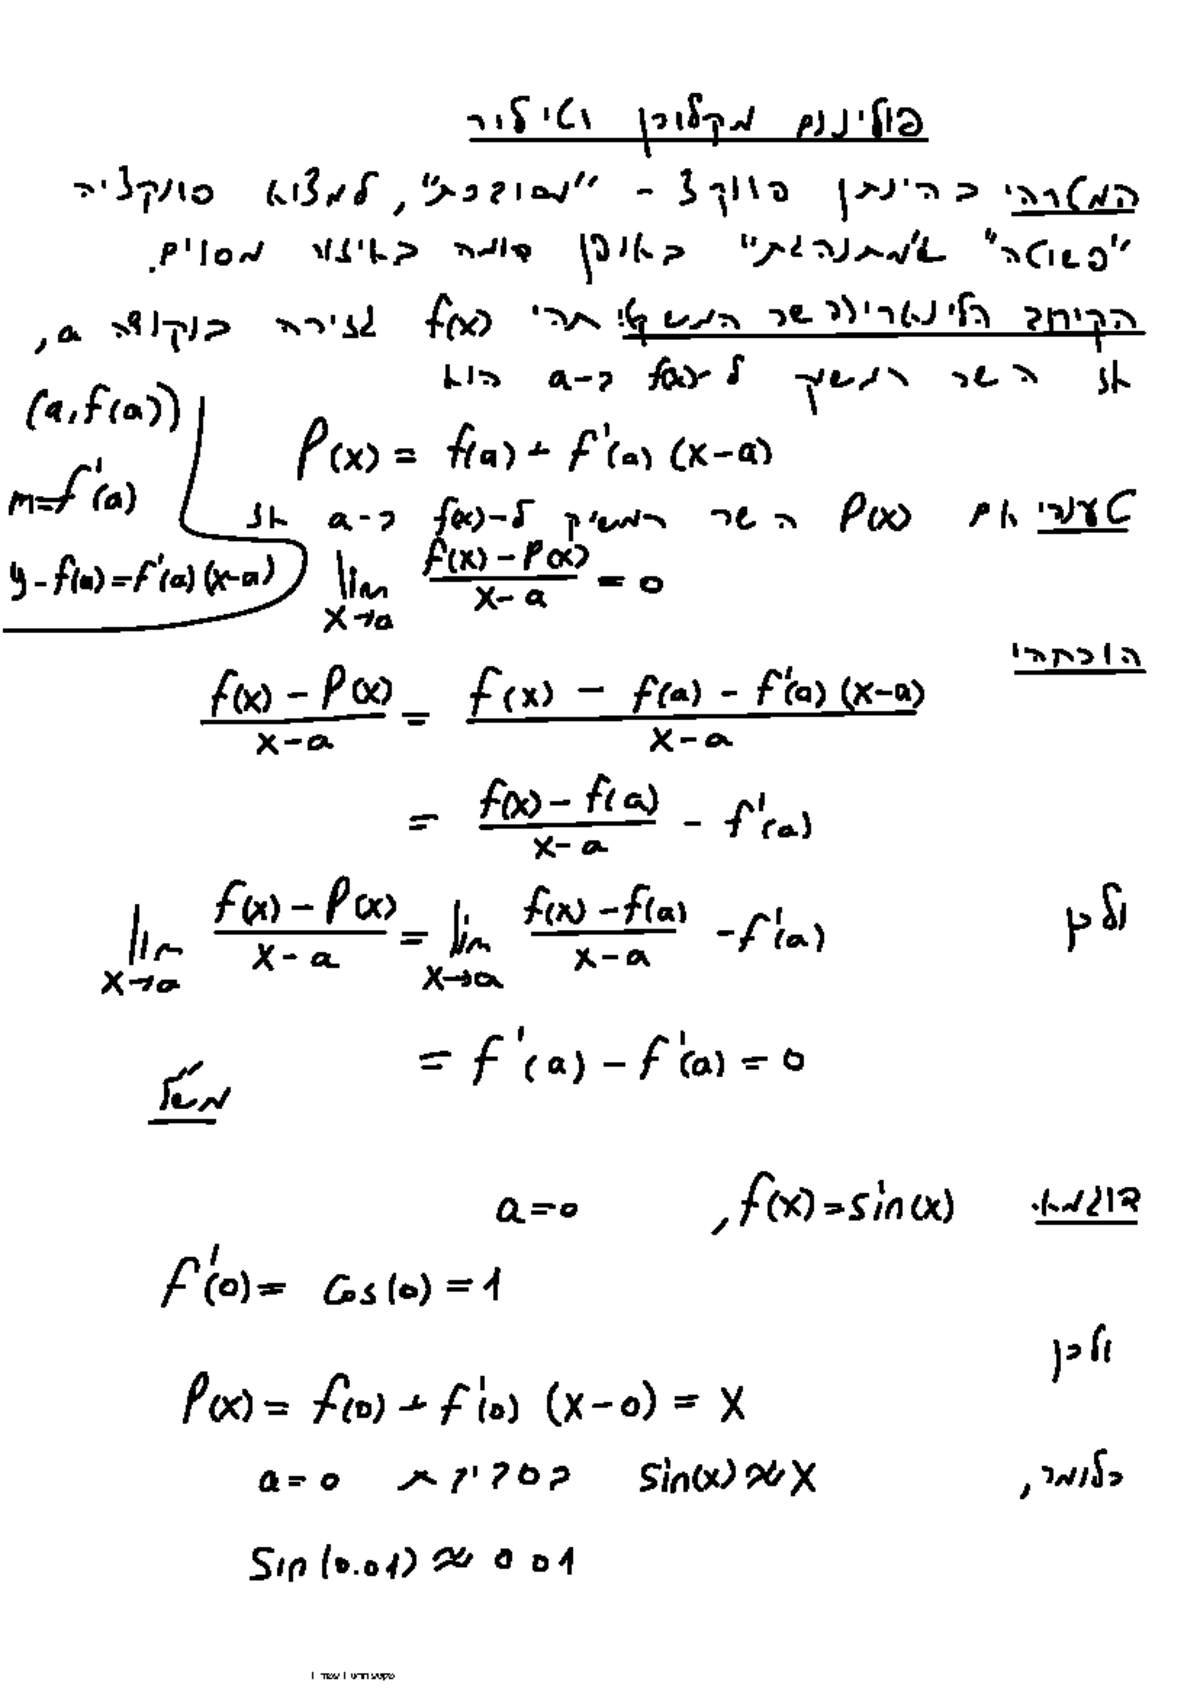 פולינום מקלורן וטילור
המטרה: בהינתן פונקצ - "מסובכת", למצוא פונקציה
"פשוטה" ש"מתנהגת" באופן דומה באיזור מסוים.
הקירוב הלינארי (הישר המשיק): תהי f(x) גזירה בנקודה a,
אז הישר המשיק ל-f(x) ב-a הוא
P(x) = f(a) + f'(a) (x-a)
(a, f(a))
m=f'(a)
y - f(a) = f'(a)(x-a)
טענה: אם P(x) הישר המשיק ל-f(x) ב-a אז
lim x→a (f(x) - P(x))/(x-a) = 0
הוכחה:
(f(x) - P(x))/(x-a) = (f(x) - f(a) - f'(a)(x-a))/(x-a)
= (f(x) - f(a))/(x-a) - f'(a)
ולכן lim x→a (f(x) - P(x))/(x-a) = lim x→a (f(x) - f(a))/(x-a) - f'(a)
= f'(a) - f'(a) = 0
מש"ל
דוגמא: f(x) = sin(x), a=0
f'(0) = cos(0) = 1
ולכן
P(x) = f(0) + f'(0) (x-0) = x
כלומר, sin(x) ≈ x בסביבת a=0
sin(0.01) ≈ 0 01